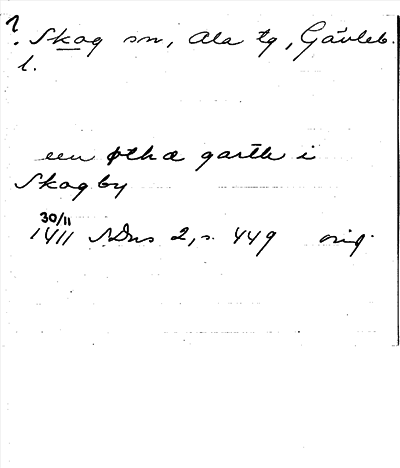 ?. Skog sn, Ala tg, Gävleb.
l.
een øthæ garth i
Skogby
30/11
1411 SDns 2, s. 449 orig.